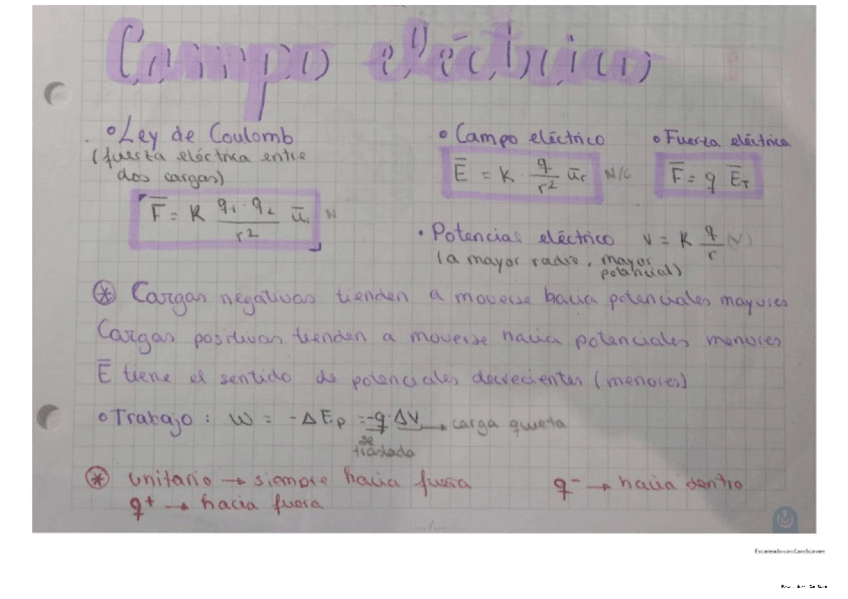 Campo eléctrico
• Ley de Coulomb
(fuerza eléctrica entre
dos cargas)
F̅ = K q₁ · q₂ / r² u̅r N
• Campo eléctrico
E̅ = K · q / r² u̅r N/C
• Fuerza eléctrica
F̅ = q E̅T
• Potencias eléctrico V = K q / r (V)
(a mayor radio, mayor
potencial)
⊛ Cargas negativas tienden a moverse hacia potenciales mayores
Cargas positivas tienden a moverse hacia potenciales menores
E̅ tiene el sentido de potenciales decrecientes (menores)
• Trabajo : W = -ΔEp = -q · ΔV → carga quieta
se
traslada
⊛ unitario → siempre hacia fuera
q⁻ → hacia dentro
q⁺ → hacia fuera
Escaneado con CamScanner